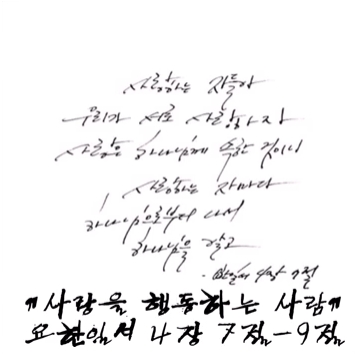 사랑하는 자들아
우리가 서로 사랑하자
사랑은 하나님께 속한 것이니
사랑하는 자마다
하나님으로부터 나서
하나님을 알고
요한일서 4장 7절
"사랑을 행동하는 사람"
요한일서 4장 7절-9절